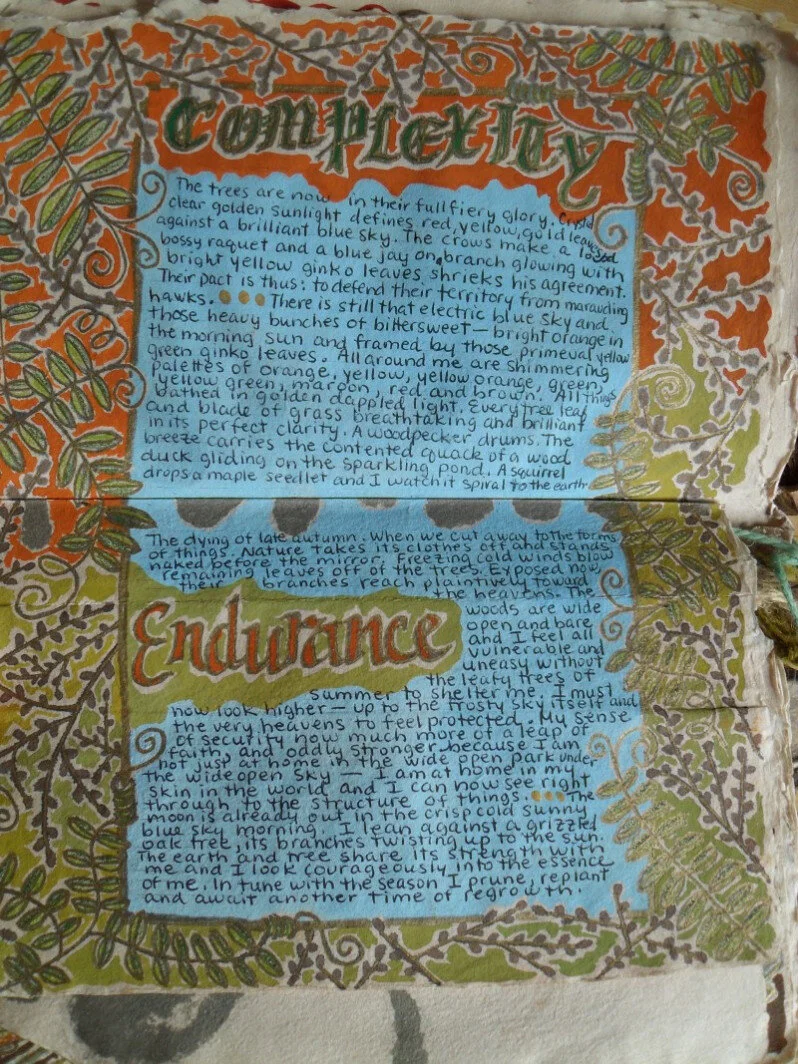 COMPLEXITY
The trees are now in their full fiery glory. Crystal
clear golden sunlight defines red, yellow, gold leaves
against a brilliant blue sky. The crows make a loud
bossy raquet and a blue jay on branch glowing with
bright yellow ginko leaves shrieks his agreement.
Their pact is thus: to defend their territory from marauding
hawks. ••• There is still that electric blue sky and
those heavy bunches of bittersweet — bright orange in
the morning sun and framed by those primeval yellow
green ginko leaves. All around me are shimmering
palettes of orange, yellow, yellow orange, green,
yellow green, maroon, red and brown. All things
bathed in golden dappled light. Every tree leaf
and blade of grass breathtaking and brilliant
in its perfect clarity. A woodpecker drums. The
breeze carries the contented quack of a wood
duck gliding on the sparkling pond. A squirrel
drops a maple seedlet and I watch it spiral to the earth
The dying of late autumn. When we cut away to the forms
of things. Nature takes its clothes off and stands
naked before the mirror. Freezing cold winds blow
remaining leaves off of the trees. Exposed now,
their branches reach plaintively toward
the heavens. The
Endurance
woods are wide
open and bare
and I feel all
vulnerable and
uneasy without
the leafy trees of
summer to shelter me. I must
now look higher — up to the frosty sky itself and
the very heavens to feel protected. My sense
of security now much more of a leap of
faith, and oddly stronger because I am
not just at home in the wide open park under
the wide open sky — I am at home in my
skin in the world and I can now see right
through to the structure of things. ••• The
moon is already out in the crisp cold sunny
blue sky morning. I lean against a grizzled
oak tree, its branches twisting up to the sun.
The earth and tree share its strength with
me and I look courageously into the essence
of me. In tune with the season I prune, replant
and await another time of regrowth.